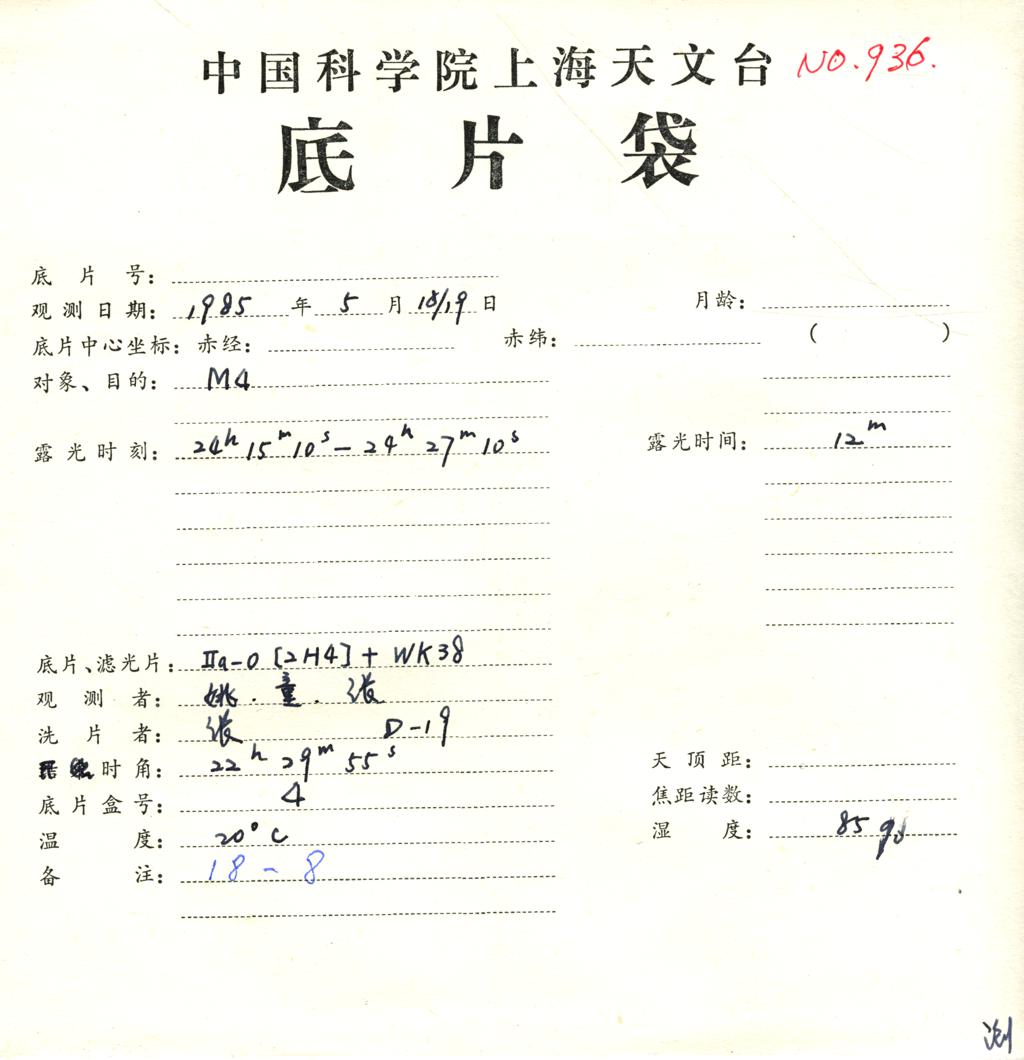 中国科学院上海天文台 NO.936.
底片袋
底片号：
观测日期：1985年5月18/19日 月龄：
底片中心坐标：赤经： 赤纬： ( )
对象、目的：M4
露光时刻：24h15m10s—24h27m10s 露光时间：12m
底片、滤光片：IIa-O [2H4] + WK38
观测者：姚.童.张
洗片者：张 D-19
时角：22h29m55s 天顶距：
底片盒号：4 焦距读数：
温度：20°C 湿度：85%
备注：18-8
测